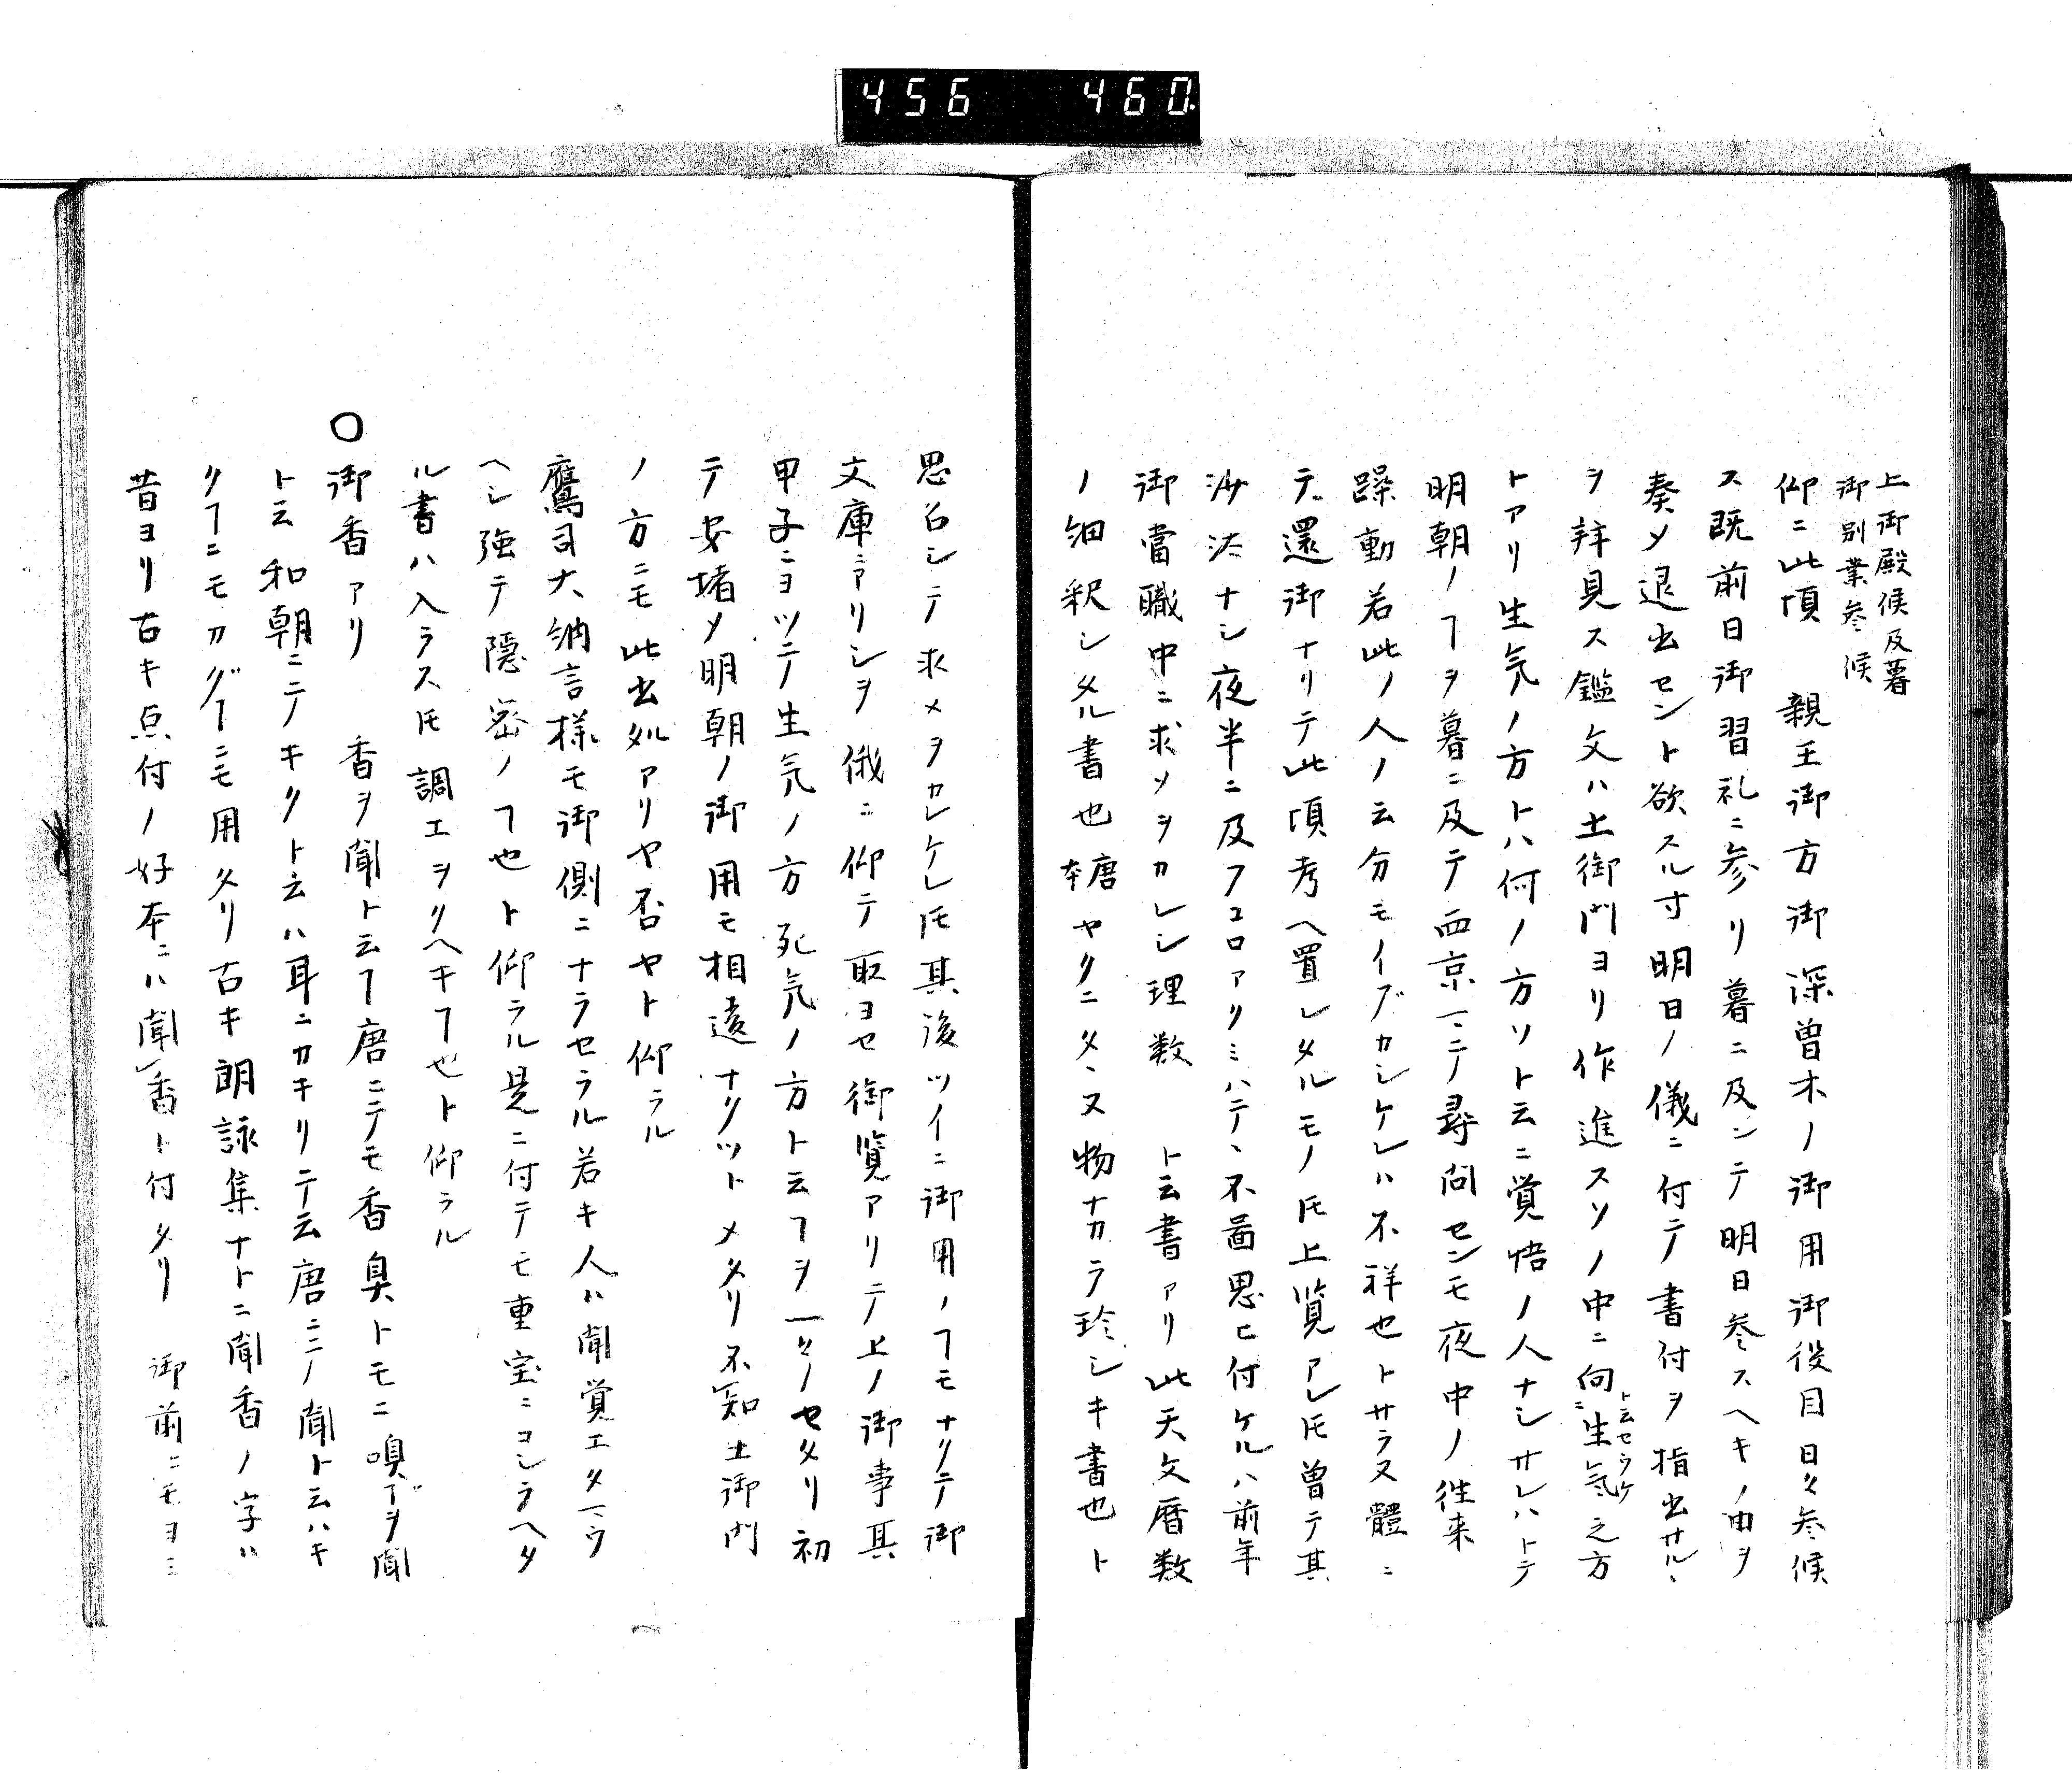 456 460.
上御殿候及暮
御別業参候
仰ニ此頃 親王御方御深曽木ノ御用御役目日々参候
ス既前日御習礼ニ参リ暮ニ及ンテ明日参スヘキノ由ヲ
奏メ退出セント欲スル寸明日ノ儀ニ付テ書付ヲ指出サル丶
ヲ拝見ス鑑文ハ土御門ヨリ作進スソノ中ニ向ニ生気之方
トアリ生気ノ方トハ何ノ方ソト云ニ覚悟ノ人ナシサレハトテ
明朝ノヿヲ暮ニ及テ西京ニテ尋問センモ夜中ノ往来
躁動若此ノ人ノ云分モイブカシケレハ不祥也トサラヌ體ニ
テ還御ナリテ此頃考ヘ置レタルモノ𪜈上覧アレ𪜈曽テ其
沙汰ナシ夜半ニ及フコロアクミハテ丶不啚思ヒ付ケルハ前年
御當職中ニ求メヲカレシ理数 ト云書アリ此天文暦数
ノ細釈シタル書也唐本ヤクニタ丶ヌ物ナカラ珍シキ書也ト
思召シテ求メヲカレケレ𪜈其後ツイニ御用ノヿモナクテ御
文庫ニアリシヲ俄ニ仰テ取ヨセ御覧アリテ上ノ御事其
甲子ニヨツテ生気ノ方死気ノ方ト云ヿヲ一々ノセタリ初
テ安堵メ明朝ノ御用モ相違ナクツトメタリ不知土御門
ノ方ニモ此出処アリヤ否ヤト仰ラル
鷹司大納言様モ御側ニナラセラル若キ人ハ聞覚エタマウ
ヘシ強テ隠密ノヿ也ト仰ラル是ニ付テモ重宝ニコシラヘタ
ル書ハ入ラス𪜈調エヲクヘキヿ也ト仰ラル
〇御香アリ 香ヲ聞ト云ヿ唐ニテモ香臭トモニ嗅デヲ聞
ト云和朝ニテキクト云ハ耳ニカキリテ云唐ニテノ聞ト云ハキ
クヿニモカグヿニモ用タリ古キ朗詠集ナトニ聞香ノ字ハ
昔ヨリ古キ点付ノ好本ニハ聞レ香ト付タリ 御前ニモヨミ